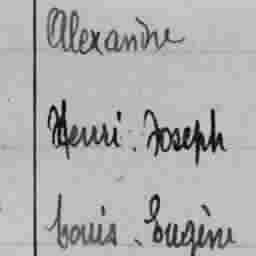 Alexandre
Henri. Joseph
Louis. Eugène